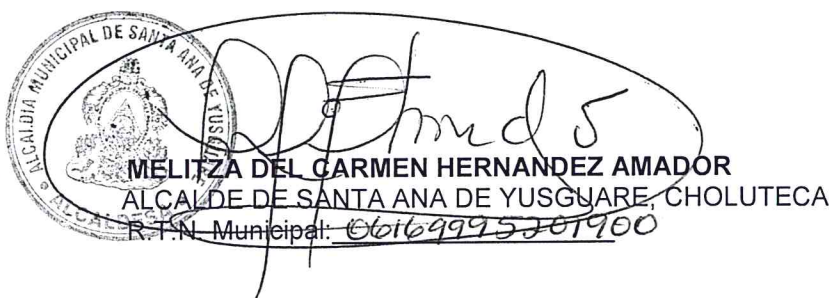 ALCALDIA MUNICIPAL DE SANTA ANA DE YUSGUARE
ALCALDESA
MELITZA DEL CARMEN HERNANDEZ AMADOR
ALCALDE DE SANTA ANA DE YUSGUARE, CHOLUTECA
R.T.N. Municipal: 06169995201900